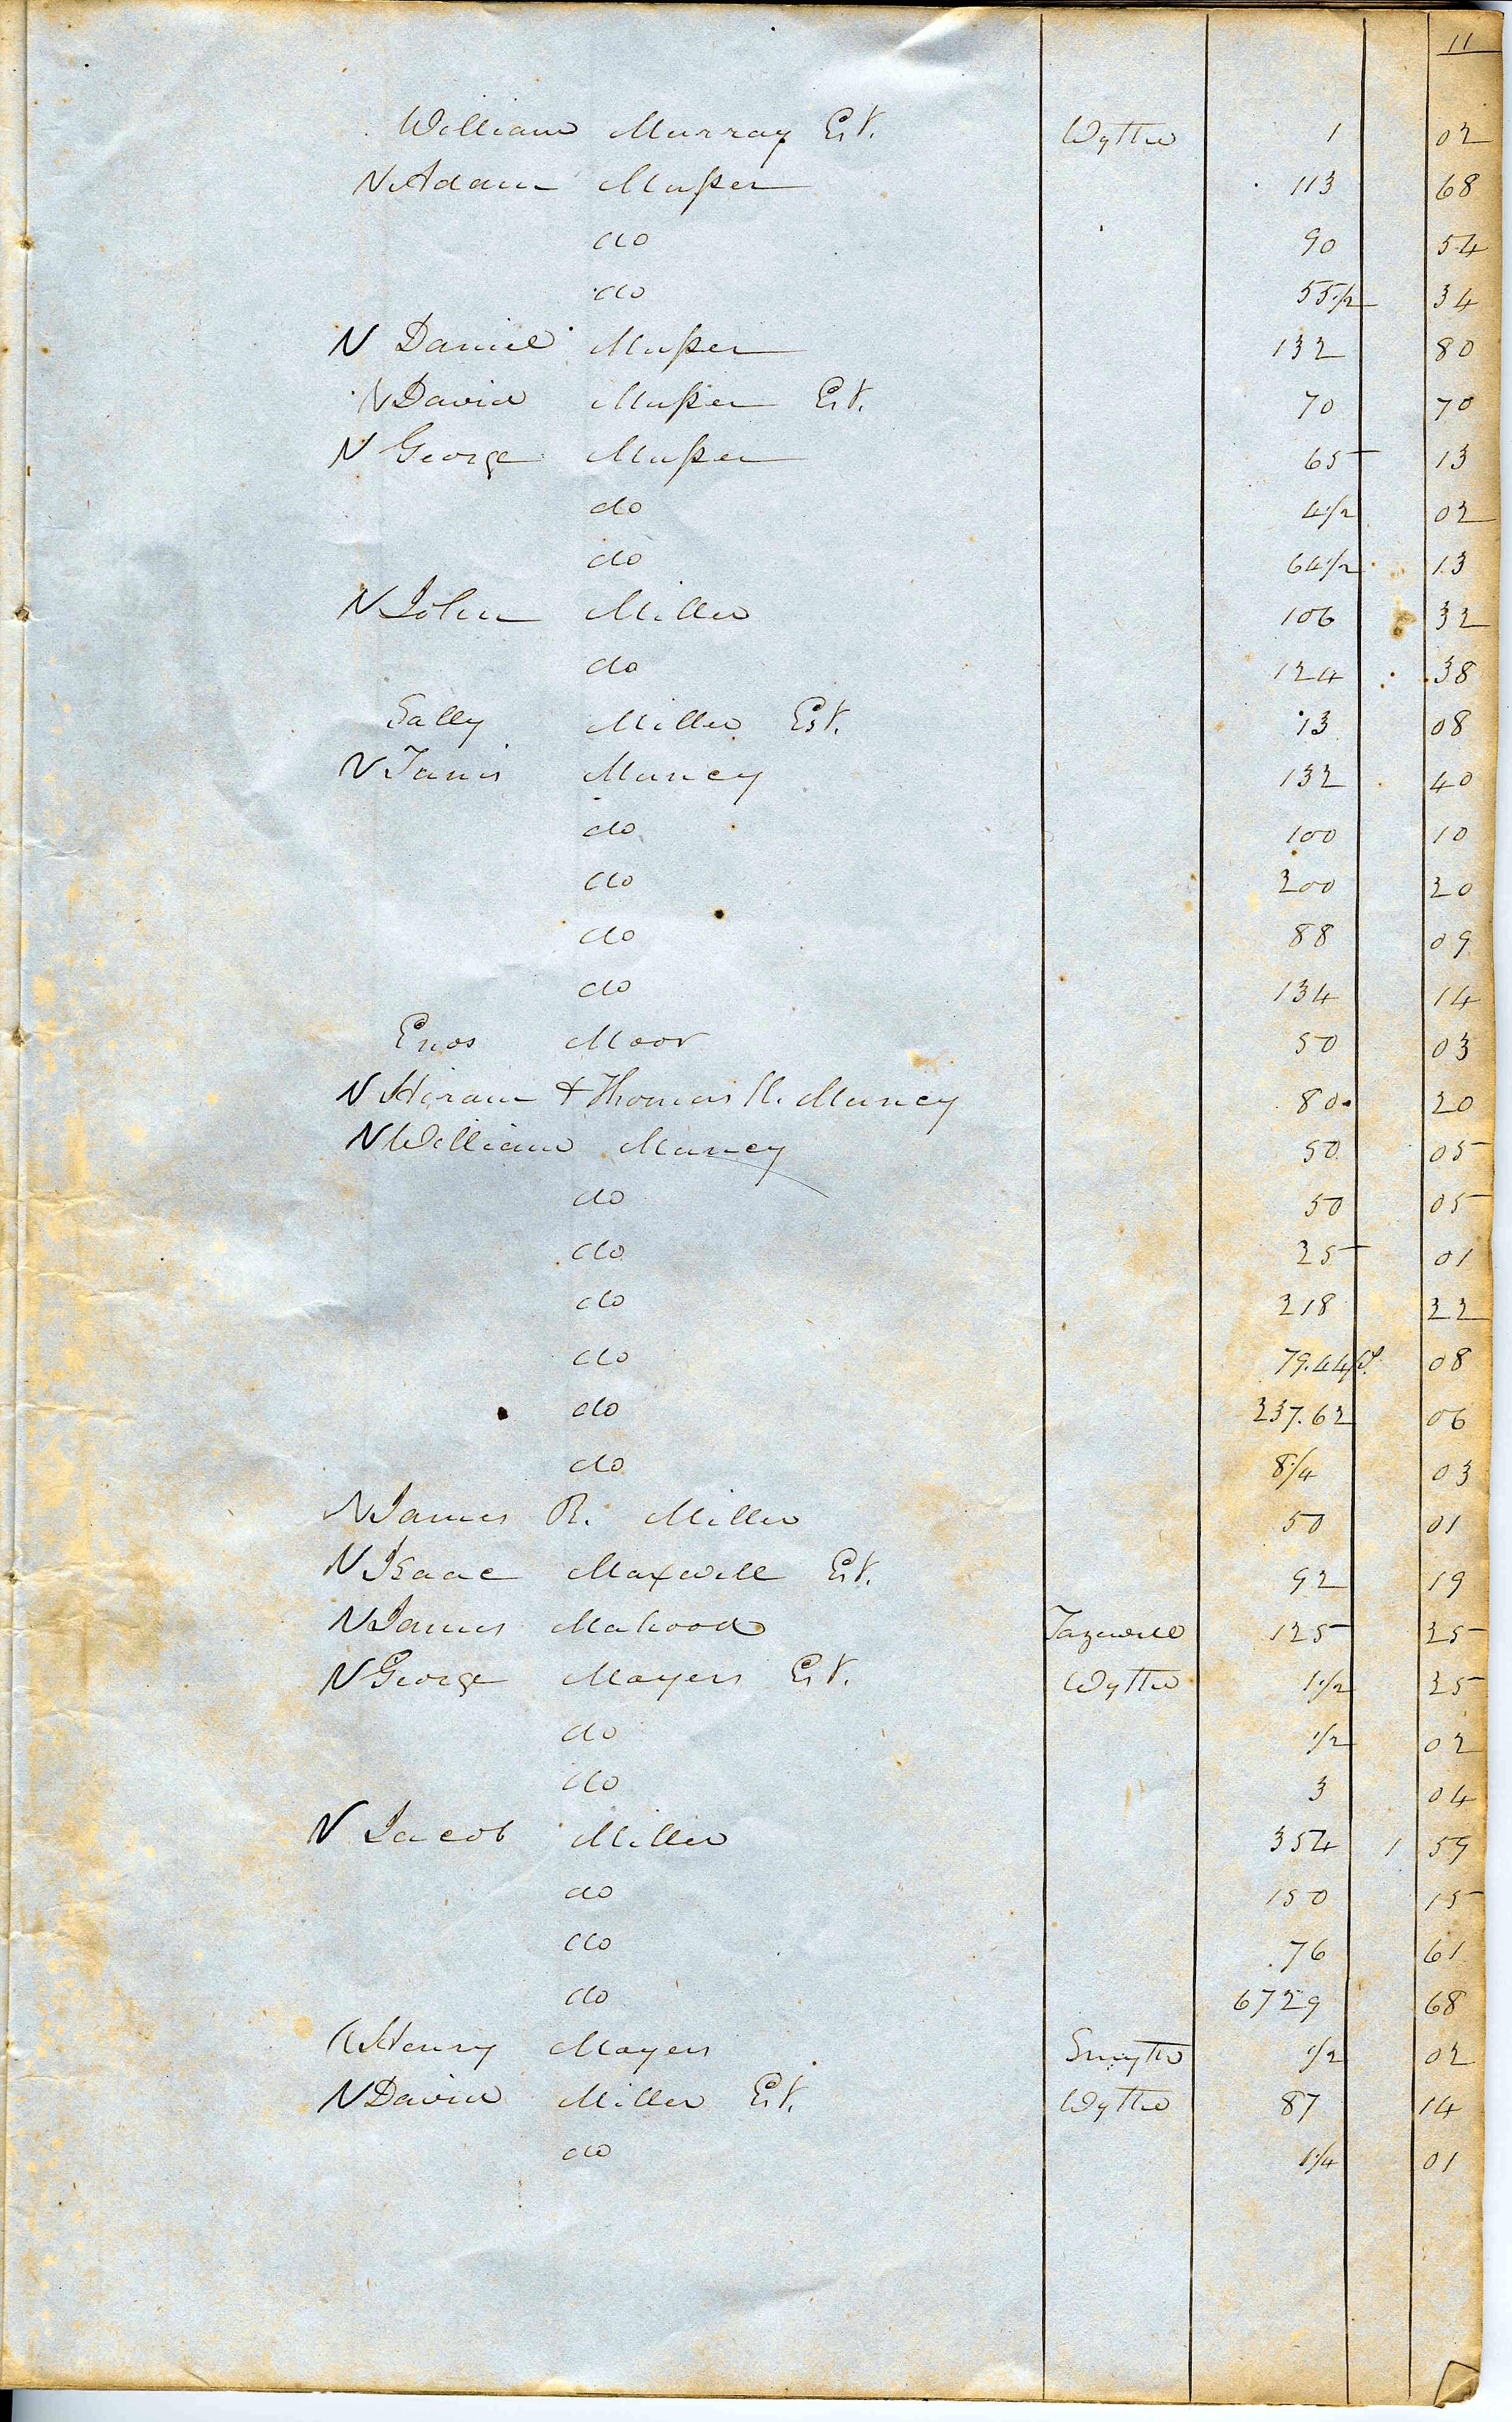 11
William Murray Est. Wythe 1 02
N Adam Musser 113 68
do 90 54
do 55 1/2 34
N Daniel Musser 132 80
N David Musser Est. 70 70
N George Musser 65 13
do 4 1/2 02
do 64 1/2 13
N John Miller 106 32
do 124 38
Sally Miller Est. 13 08
N Muncy 132 40
do 100 10
do 200 20
do 88 09
do 134 14
Enos Moor 50 03
N Hiram & Thomas H. Muncy 80 20
N William Muncy 50 05
do 50 05
do 25 01
do 218 22
do 79.44 08
do 237.62 06
do 8 1/4 03
N James R. Miller 50 01
N Isaac Maxwell Est. 92 19
N James Mahood Tazewell 125 25
N George Mayers Est. Wythe 1 1/2 25
do 1/2 02
do 3 04
N Jacob Miller 354 1 59
do 150 15
do 76 61
do 6729 68
N Henry Mayers Smythe 1/2 02
N David Miller Est. Wythe 87 14
do 1 1/4 01